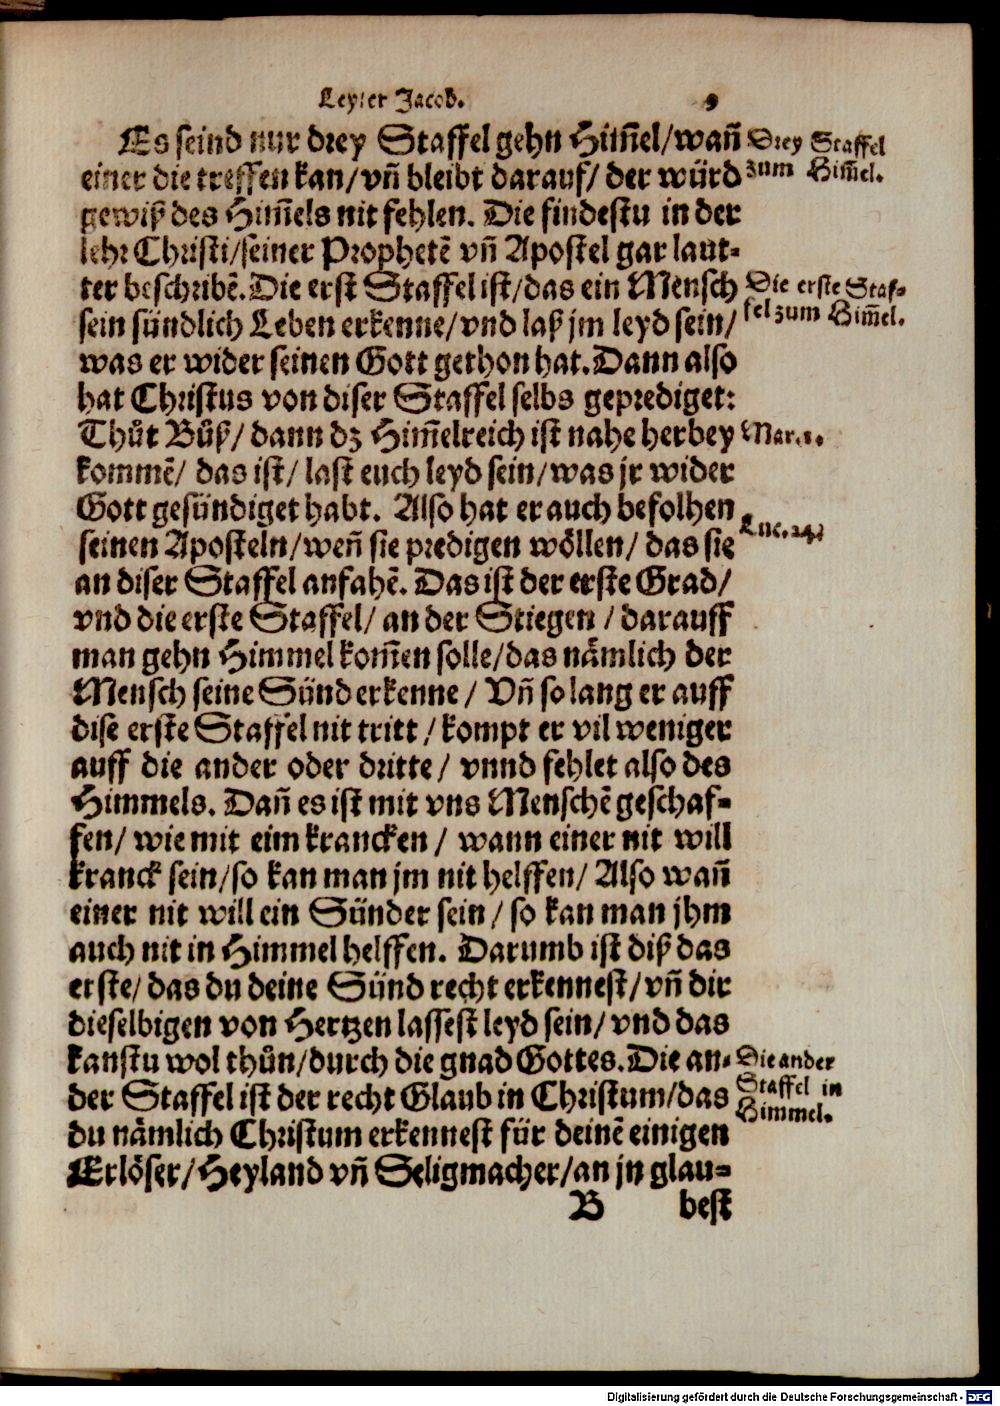 Leyter Jacob. 9
Es seind nur drey Staffel gehn Him̃el/wañ
einer die treffen kan/vñ bleibt darauf/ der würd
gewiß des Him̃els nit fehlen. Die findestu in der
lehr Christi/seiner Prophetẽ vñ Apostel gar laut-
ter beschribẽ. Die erst Staffel ist/das ein Mensch
sein sündlich Leben erkenne/vnd laß jm leyd sein/
was er wider seinen Gott gethon hat. Dann also
hat Christus von diser Staffel selbs geprediget:
Thůt Bůß/ dann dz Him̃elreich ist nahe herbey
kommẽ/ das ist/ last euch leyd sein/was jr wider
Gott gesündiget habt. Also hat er auch befolhen
seinen Aposteln/weñ sie predigen wöllen/ das sie
an diser Staffel anfahẽ. Das ist der erste Grad/
vnd die erste Staffel/ an der Stiegen / darauff
man gehn Himmel kom̃en solle/das nämlich der
Mensch seine Sünd erkenne / Vñ so lang er auff
dise erste Staffel nit tritt / kompt er vil weniger
auff die ander oder dritte/ vnnd fehlet also des
Himmels. Dañ es ist mit vns Menschẽ geschaf-
fen/ wie mit eim krancken / wann einer nit will
kranck sein/so kan man jm nit helffen/ Also wañ
einer nit will ein Sünder sein / so kan man jhm
auch nit in Himmel helffen. Darumb ist diß das
erste/ das du deine Sünd recht erkennest/vñ dir
dieselbigen von Hertzen lassest leyd sein/ vnd das
kanstu wol thůn/durch die gnad Gottes. Die an-
der Staffel ist der recht Glaub in Christum/das
du nämlich Christum erkennest für deinẽ einigen
Erlöser/Heyland vñ Seligmacher/an jn glau-
B best
Drey Staffel
zum Him̃el.
Die erste Staf-
fel zum Him̃el.
Mar.1.
Luc.24.
Die ander
Staffel in
Himmel.
Digitalisierung gefördert durch die Deutsche Forschungsgemeinschaft - DFG